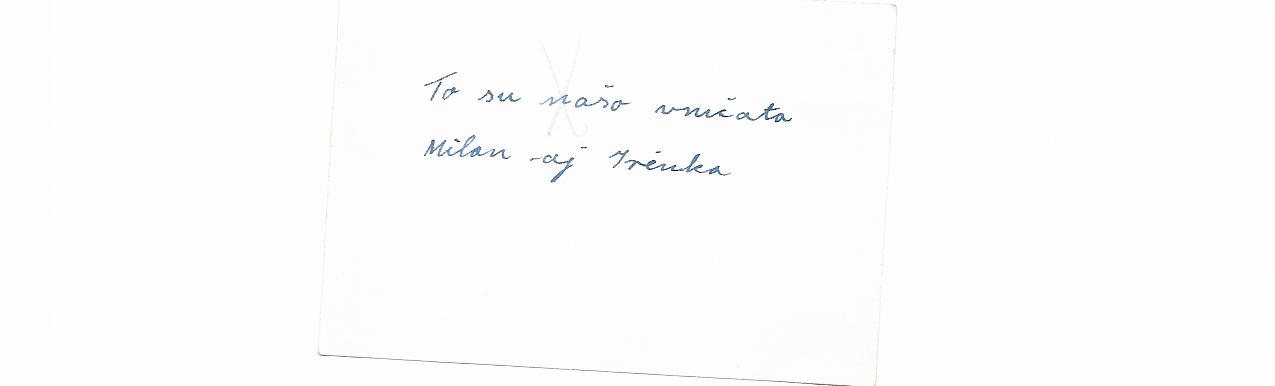 To su našo vničata
Milan aj Irénka